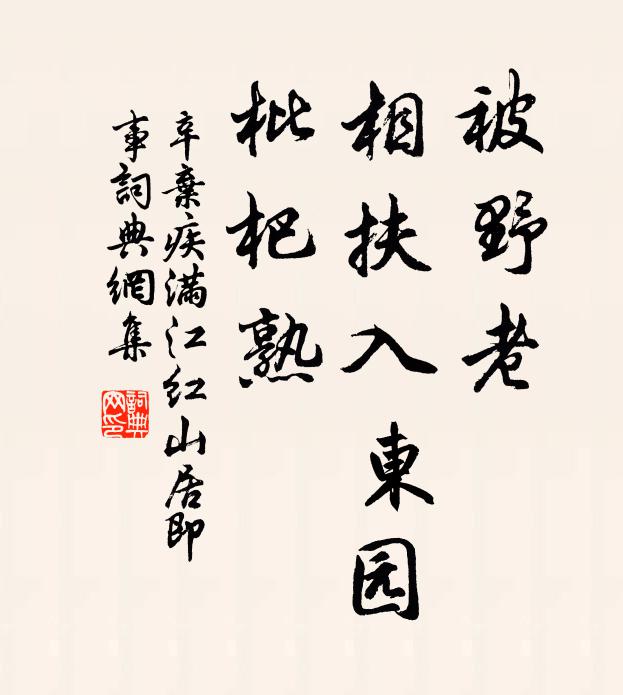 被野老
相扶入東园
枇杷熟
辛棄疾满江红山居即
事詞典網集
詞典网印